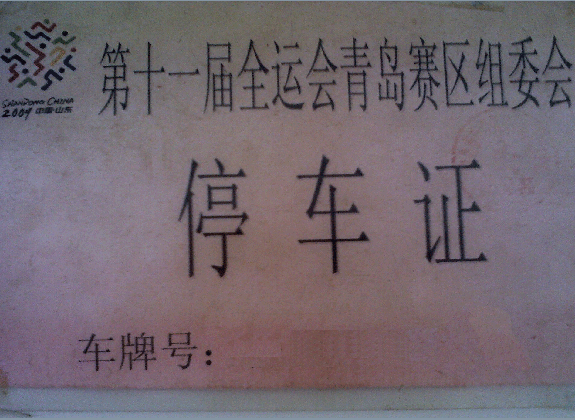 SHANDONG CHINA
2009 中国·山东
第十一届全运会青岛赛区组委会
停车证
车牌号：